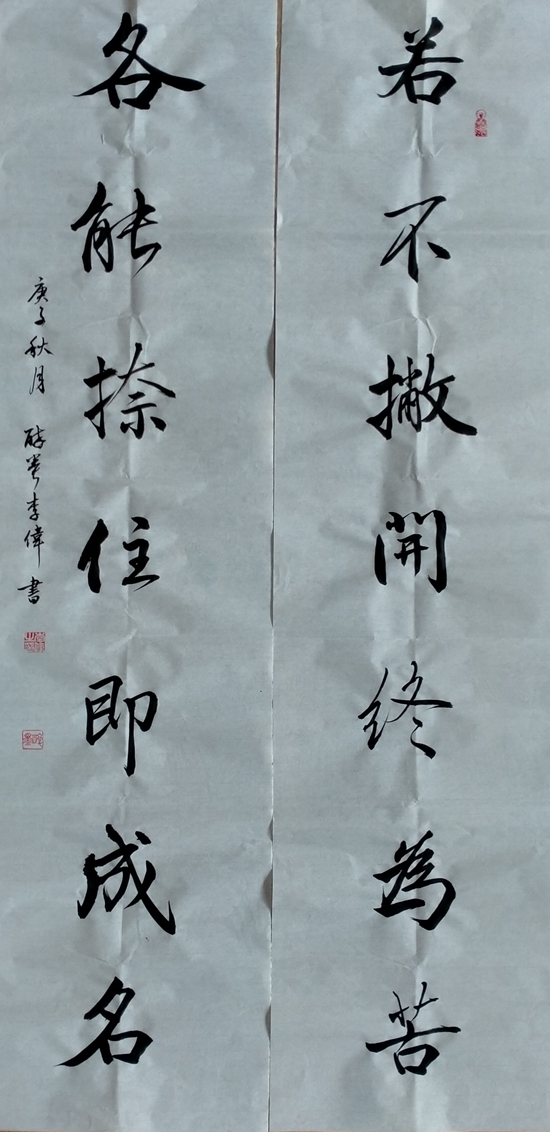 若不撇開終為苦
各能捺住即成名
庚子秋月 醉墨李偉書